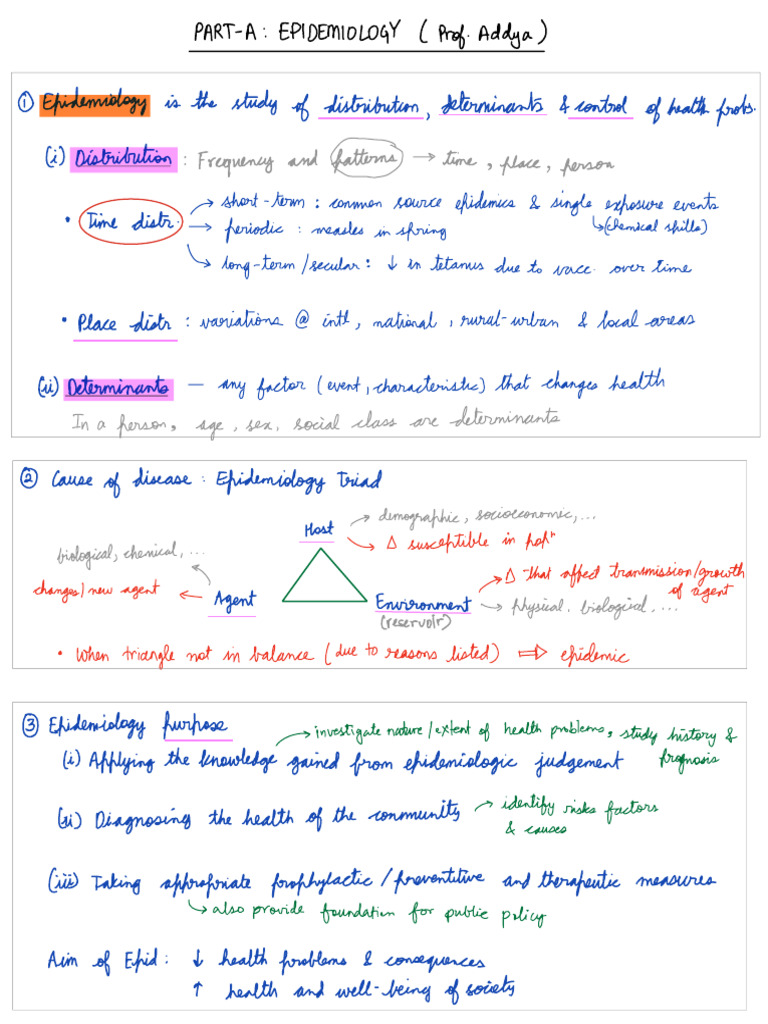 PART-A: EPIDEMIOLOGY (Prof. Addya)
① Epidemiology is the study of distribution, determinants & control of health probs.
(i) Distribution : Frequency and patterns → time, place, person
• Time distr. → short-term : common source epidemics & single exposure events
↳ (chemical spills)
→ periodic : measles in spring
→ long-term/secular : ↓ in tetanus due to vacc. over time
• Place distr : variations @ intl, national, rural-urban & local areas
(ii) Determinants — any factor (event, characteristic) that changes health
In a person, age, sex, social class are determinants
② Cause of disease : Epidemiology Triad
Host → demographic, socioeconomic, ...
→ Δ susceptible in popⁿ
biological, chemical, ...
changes/new agent ← Agent
Environment → Δ that affect transmission/growth of agent
(reservoir) → physical, biological, ...
• When triangle not in balance (due to reasons listed) ⇒ epidemic
③ Epidemiology purpose
→ investigate nature/extent of health problems, study history & prognosis
(i) Applying the knowledge gained from epidemiologic judgement
(ii) Diagnosing the health of the community → identify risks factors
& causes
(iii) Taking appropriate prophylactic/preventitive and therapeutic measures
↳ also provide foundation for public policy
Aim of Epid : ↓ health problems & consequences
↑ health and well-being of society